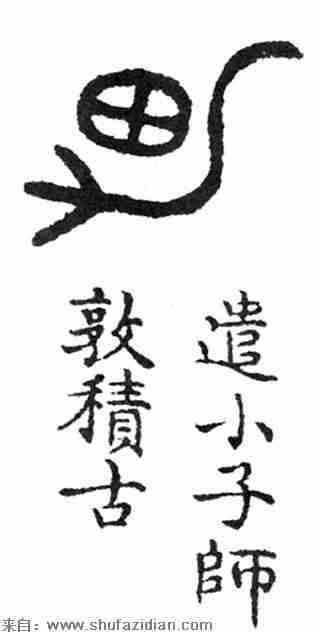 男
遣小子師
敦積古
来自：www.shufazidian.com